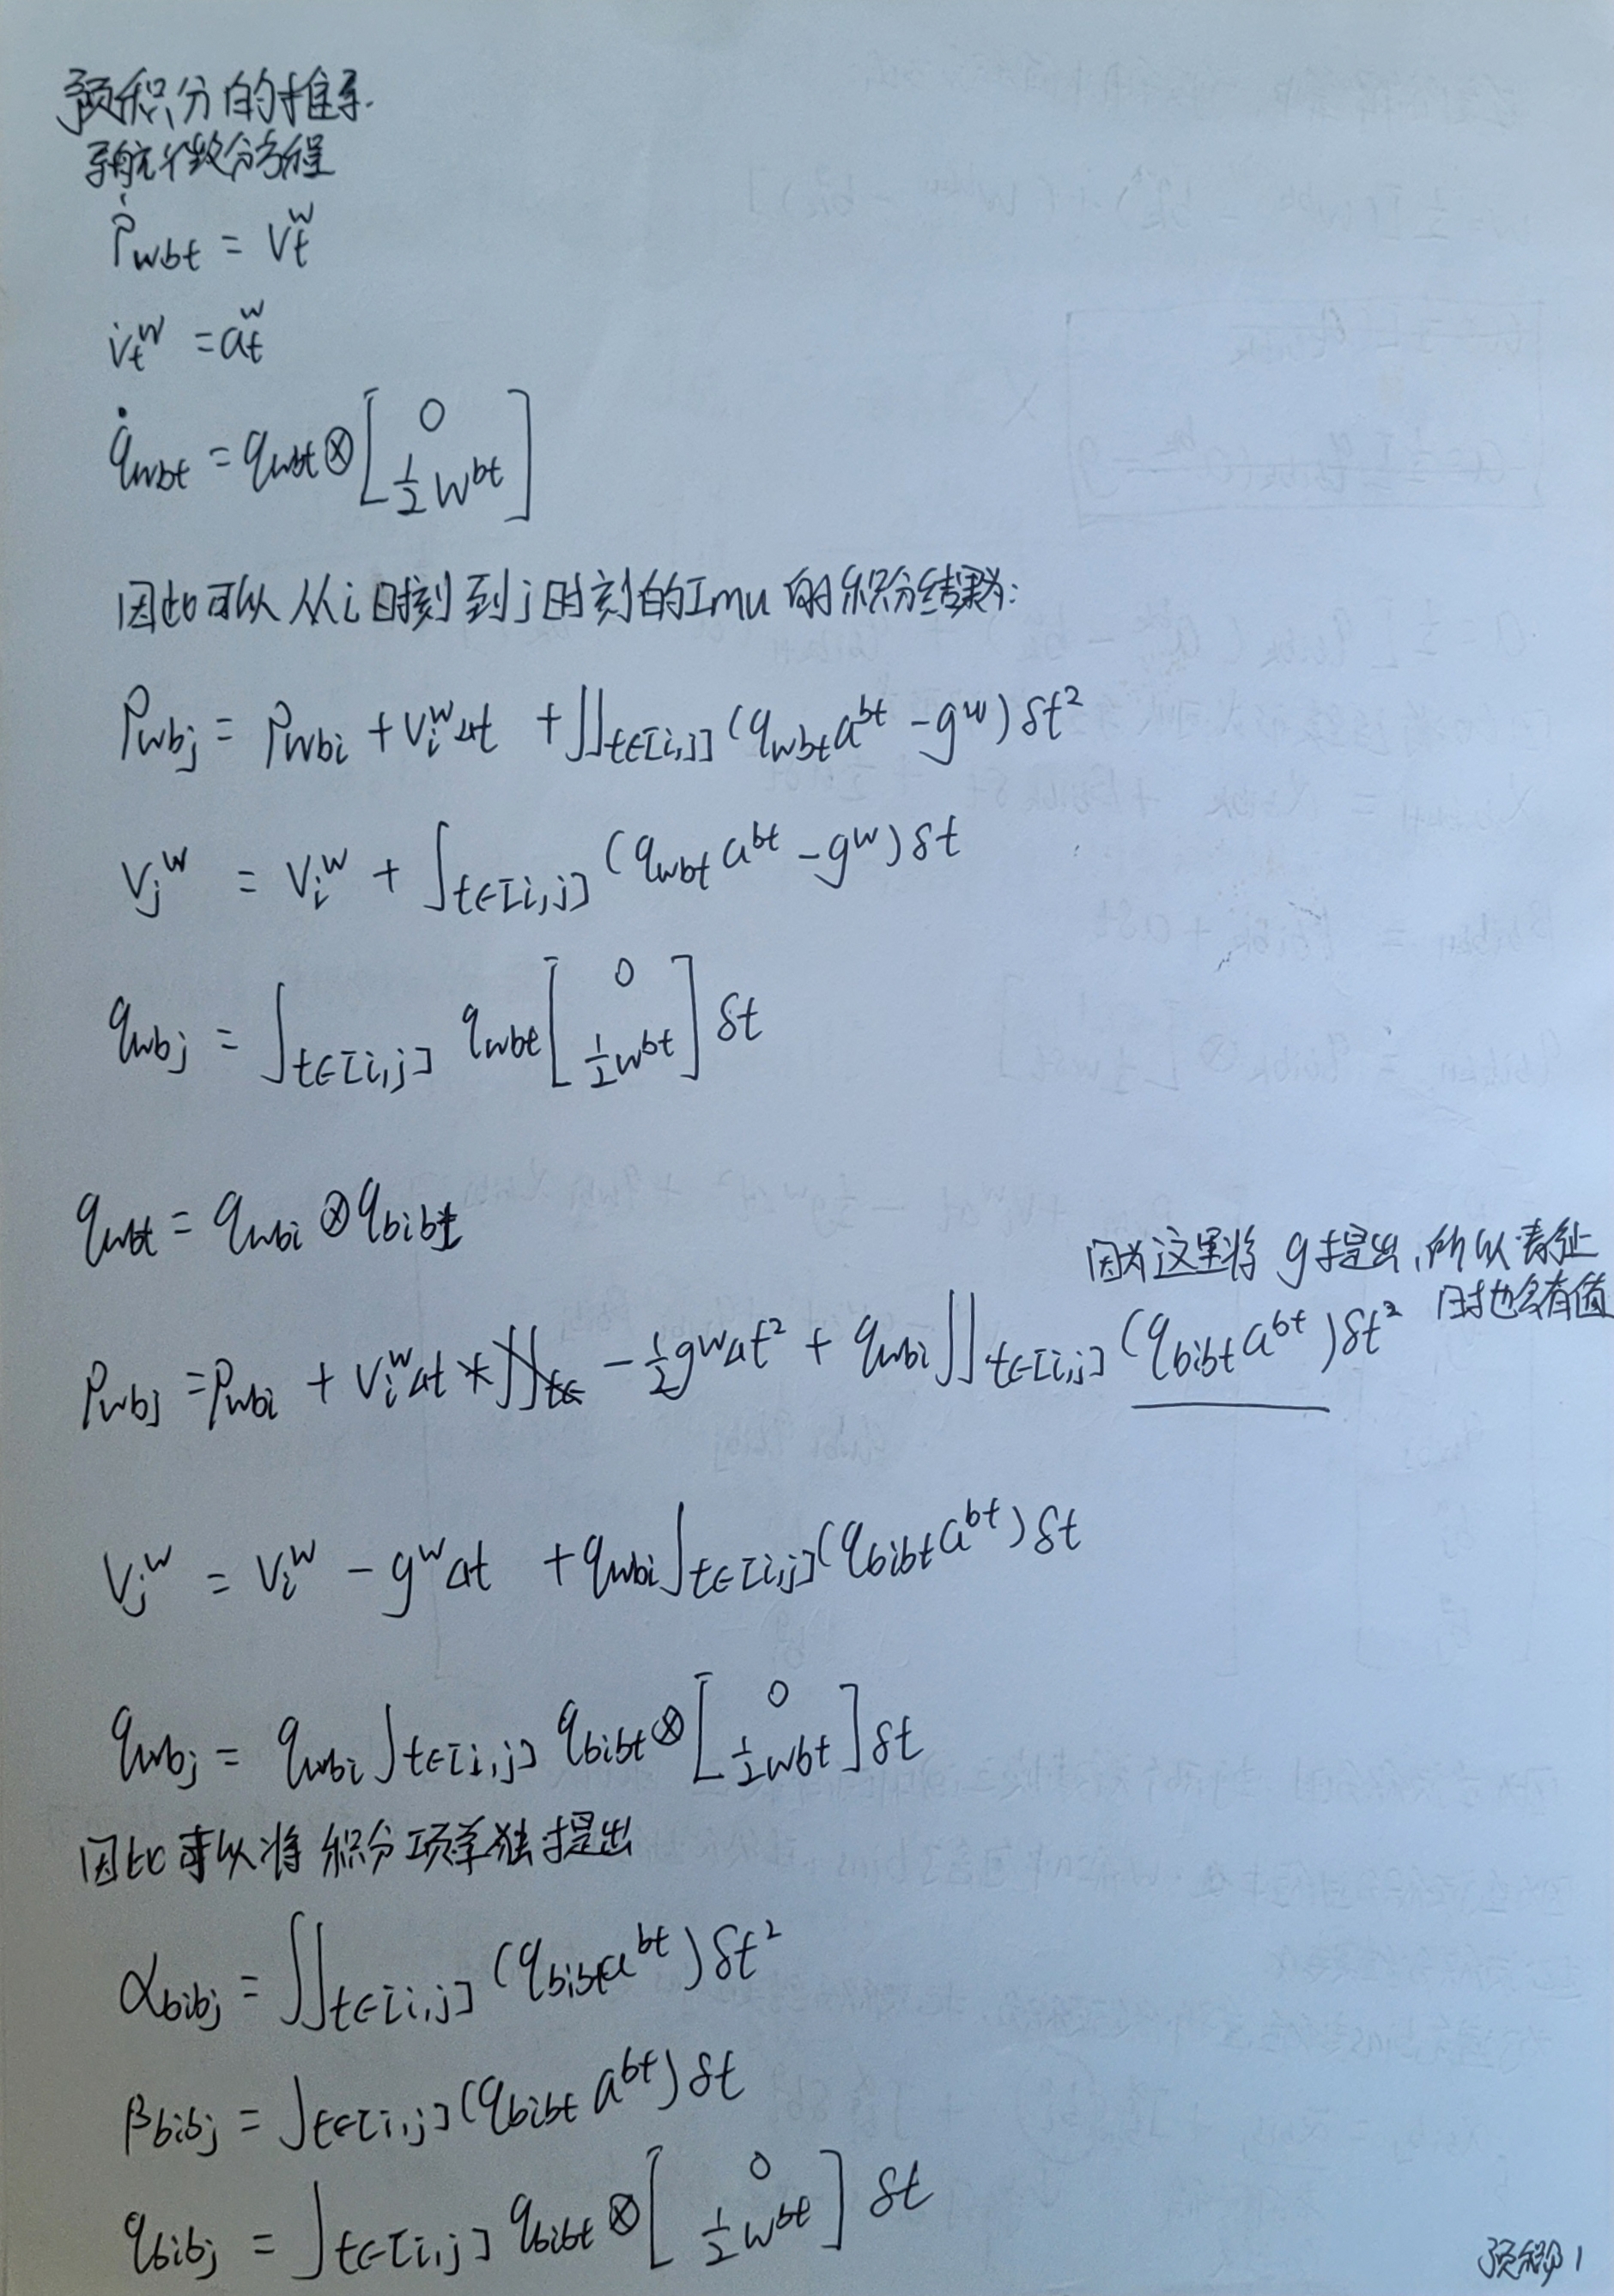 预积分的推导.
导航微分方程
ṗwbt = Vt^w
v̇t^w = at^w
q̇wbt = qwbt ⊗ [0; 1/2 w^bt]
因此可以从i时刻到j时刻的Imu的积分结果为:
Pwbj = Pwbi + Vi^w Δt + ∬t∈[i,j] (qwbt a^bt - g^w) δt²
Vj^w = Vi^w + ∫t∈[i,j] (qwbt a^bt - g^w) δt
qwbj = ∫t∈[i,j] qwbt [0; 1/2 w^bt] δt
qwbt = qwbi ⊗ qbibt
因为这里将g提出,所以静止
时也会有值
Pwbj = Pwbi + Vi^w Δt - 1/2 g^w Δt² + qwbi ∬t∈[i,j] (qbibt a^bt) δt²
Vj^w = Vi^w - g^w Δt + qwbi ∫t∈[i,j] (qbibt a^bt) δt
qwbj = qwbi ∫t∈[i,j] qbibt ⊗ [0; 1/2 wbt] δt
因此可以将积分项单独提出
αbibj = ∬t∈[i,j] (qbibt a^bt) δt²
βbibj = ∫t∈[i,j] (qbibt a^bt) δt
qbibj = ∫t∈[i,j] qbibt ⊗ [0; 1/2 w^bt] δt
预积分 1